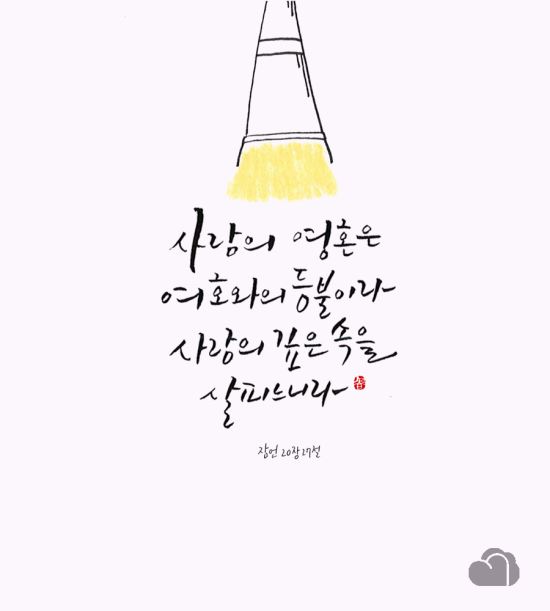 사람의 영혼은
여호와의 등불이라
사람의 깊은 속을
살피느니라
잠언 20장 27절